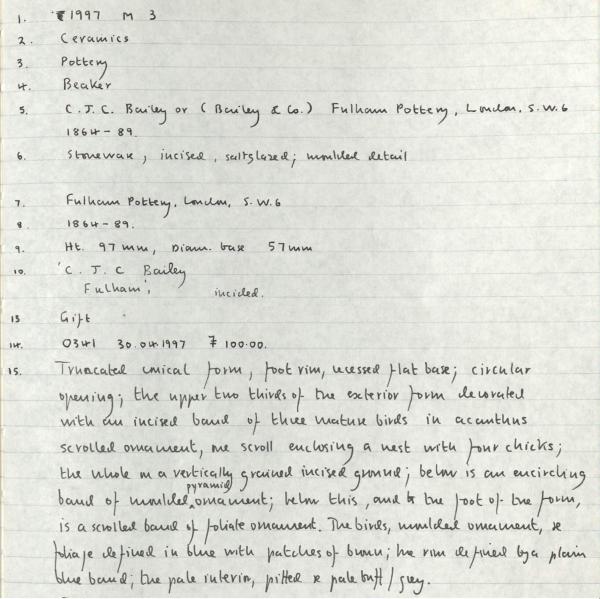 1. 1997 M 3
2. Ceramics
3. Pottery
4. Beaker
5. C.J.C. Bailey or (Bailey & Co.) Fulham Pottery, London, S.W.6
1864-89.
6. Stoneware, incised, saltglazed; moulded detail
7. Fulham Pottery, London, S.W.6
8. 1864-89.
9. Ht. 97mm, Diam. base 57mm
10. 'C. J. C Bailey
Fulham', incided.
13 Gift
14. 0341 30.04.1997 100.00.
15. Truncated conical form, foot rim, recessed flat base; circular
opening; the upper two thirds of the exterior form decorated
with an incised band of three mature birds in acanthus
scrolled ornament, one scroll enclosing a nest with four chicks;
the whole on a vertically grained incised ground; below is an encircling
band of moulded pyramid ornament; below this, and to the foot of the form,
is a scrolled band of foliate ornament. The birds, moulded ornament, &
foliage defined in blue with patches of brown; the rim defined by a plain
blue band; the pale interior, pitted & pale buff/grey.